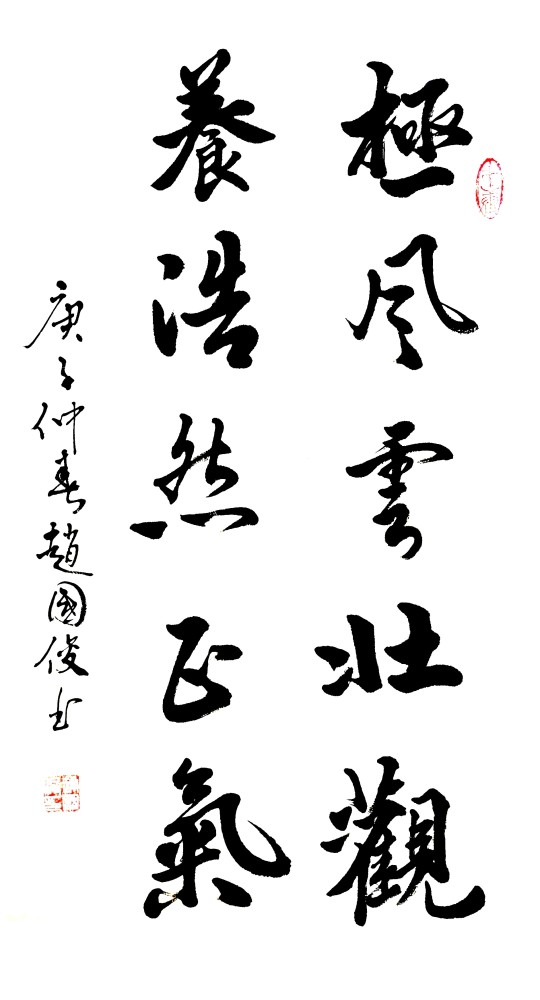 極風雲壯觀
養浩然正氣
庚子仲春趙國俊书